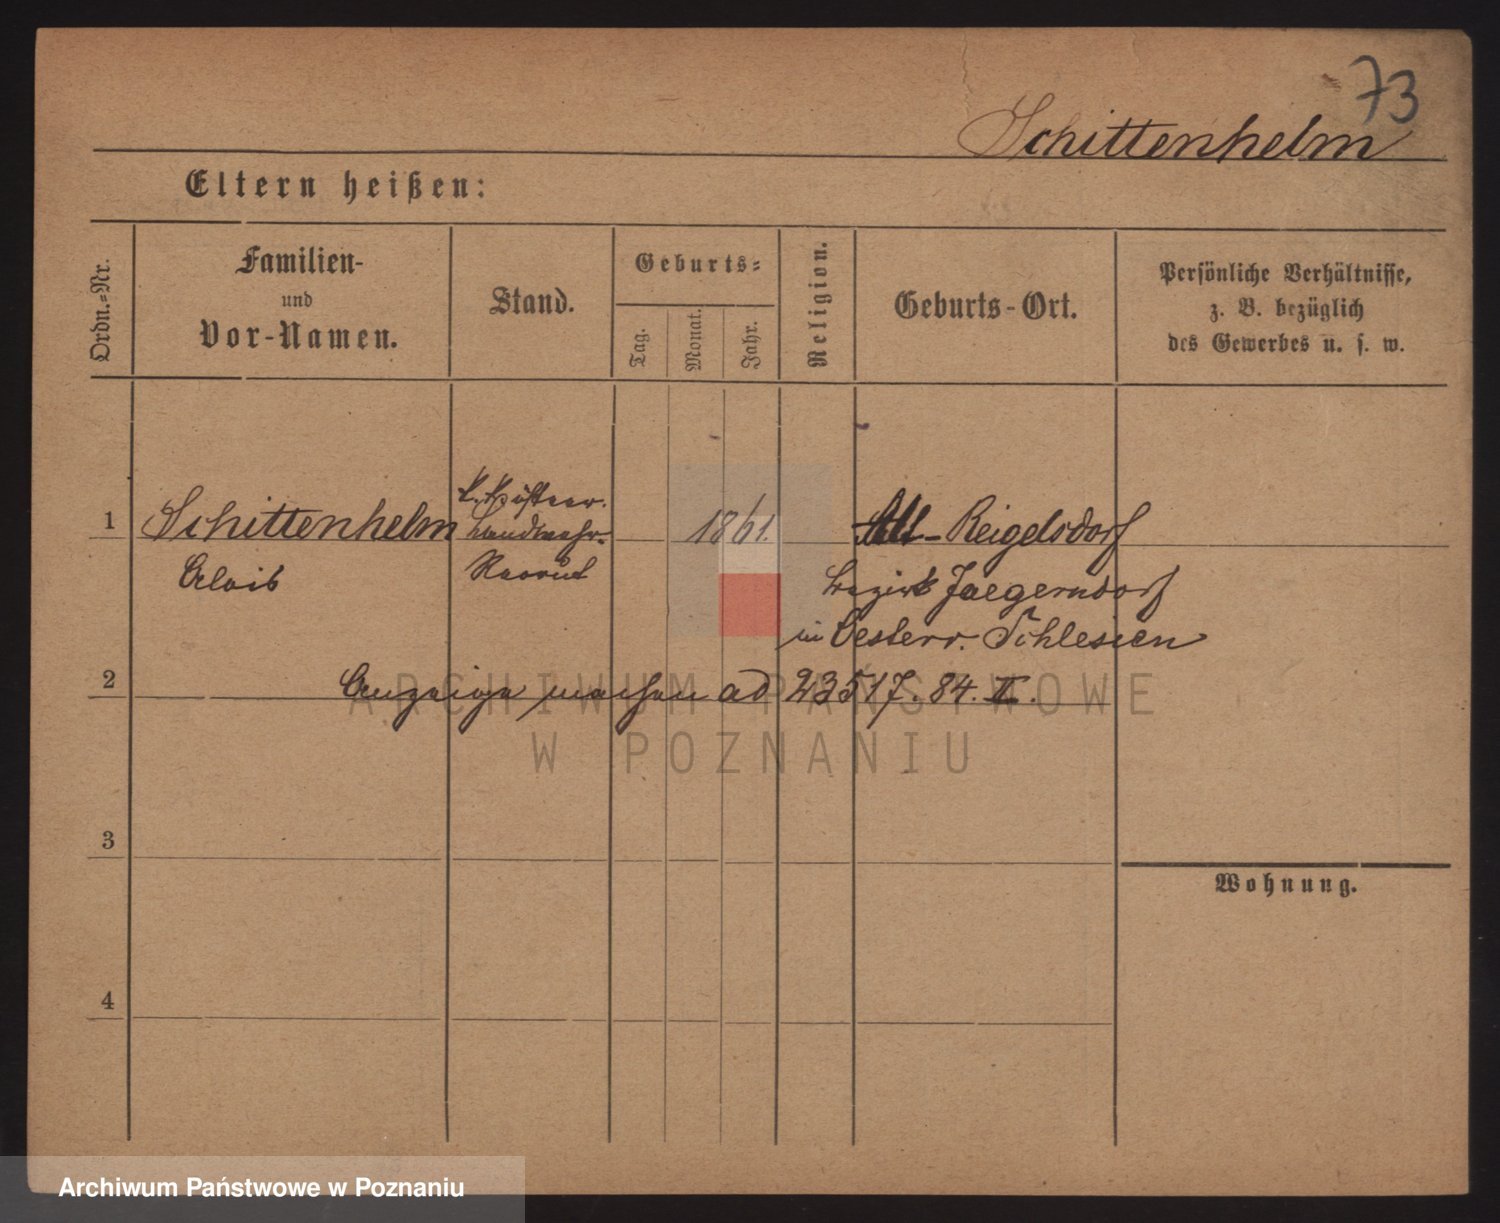 73
Schittenhelm
Eltern heißen:
Ordn.=Nr.
Familien-
und
Vor-Namen.
Stand.
Geburts=
Tag.
Monat.
Jahr.
Religion.
Geburts-Ort.
Persönliche Verhältnisse,
z. B. bezüglich
des Gewerbes u. s. w.
1
Schittenhelm
Alois
Landwehr-
Recrut
1861.
Alt-Reigelsdorf
Bezirk Jaegerndorf
in Oesterr. Schlesien
2
Anzeige machen ad 23517. 84. II.
ARCHIWUM PAŃSTWOWE
W POZNANIU
3
Wohnung.
4
Archiwum Państwowe w Poznaniu